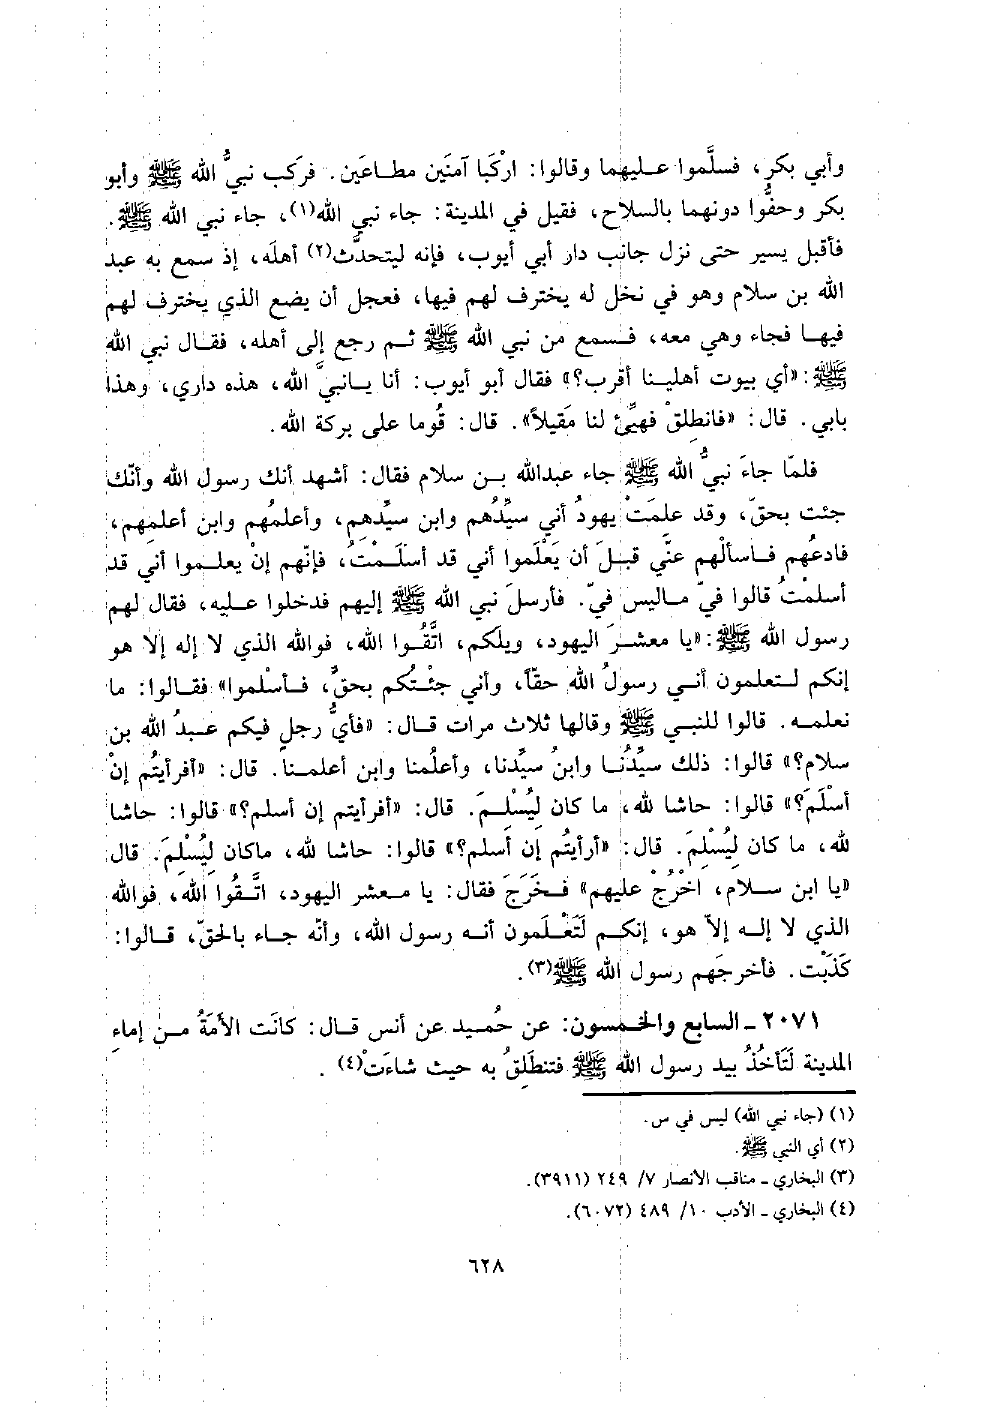 وأبي بكرٍ، فسلَّموا عليهما وقالوا: ارْكَبا آمنَين مطاعَين. فركَب نبيُّ الله ﷺ وأبو
بكر وحفُّوا دونهما بالسلاح، فقيل في المدينة: جاء نبي الله(١)، جاء نبي الله ﷺ.
فأقبل يسير حتى نزل جانب دار أبي أيوب، فإنه ليتحدَّث(٢) أهلَه، إذ سمع به عبد
الله بن سلام وهو في نخل له يخترف لهم فيها، فعجل أن يضع الذي يخترف لهم
فيها فجاء وهي معه، فسمع من نبي الله ﷺ ثم رجع إلى أهله، فقال نبي الله
ﷺ: «أي بيوت أهلينا أقرب؟» فقال أبو أيوب: أنا يانبيَّ الله، هذه داري، وهذا
بابي. قال: «فانطلقْ فهيِّئ لنا مَقيلاً». قال: قُوما على بركة الله.
فلمّا جاءَ نبيُّ الله ﷺ جاء عبدالله بن سلام فقال: أشهد أنك رسول الله وأنّك
جئت بحقّ، وقد علِمَتْ يهودُ أني سيِّدُهم وابن سيِّدِهم، وأعلمُهم وابن أعلمِهم،
فادعُهم فاسألْهم عنّي قبلَ أن يَعْلَموا أني قد أسْلَمْتُ، فإنّهم إنْ يعلموا أني قد
أسلمْتُ قالوا فيّ ماليس فيّ. فأرسلَ نبي الله ﷺ إليهم فدخلوا عليه، فقال لهم
رسول الله ﷺ: «يا معشرَ اليهود، ويلَكم، اتَّقُوا الله، فوالله الذي لا إله إلا هو
إنكم لتعلمون أني رسولُ الله حقّاً، وأني جئتُكم بحقٍّ، فأسْلموا» فقالوا: ما
نعلمه. قالوا للنبي ﷺ وقالها ثلاث مرات قال: «فأيُّ رجلٍ فيكم عبدُ الله بن
سلام؟» قالوا: ذلك سيِّدُنا وابنُ سيِّدنا، وأعلُمنا وابن أعلمنا. قال: «أفرأيتُم إنْ
أسْلَمَ؟» قالوا: حاشا لله، ما كان لِيُسْلِمَ. قال: «أفرأيتم إن أسلم؟» قالوا: حاشا
لله، ما كان لِيُسْلِمَ. قال: «أرأيتُم إن أسلم؟» قالوا: حاشا لله، ماكان لِيُسْلِمَ. قال
«يا ابن سلام، اخْرُجْ عليهم» فخَرَجَ فقال: يا معشر اليهود، اتَّقُوا الله، فوالله
الذي لا إله إلاّ هو، إنكم لَتَعْلَمون أنه رسول الله، وأنّه جاء بالحقّ، قالوا:
كَذَبْت. فأخرجَهم رسول الله ﷺ(٣).
٢٠٧١ - السابع والخمسون: عن حُميد عن أنس قال: كانَت الأمَةُ من إماءِ
المدينة لَتَأخُذُ بيد رسول الله ﷺ فتنطَلِقُ به حيث شاءَتْ(٤).
(١) (جاء نبي الله) ليس في س.
(٢) أي النبي ﷺ.
(٣) البخاري - مناقب الأنصار ٧/ ٢٤٩ (٣٩١١).
(٤) البخاري - الأدب ١٠/ ٤٨٩ (٦٠٧٢).
٦٢٨